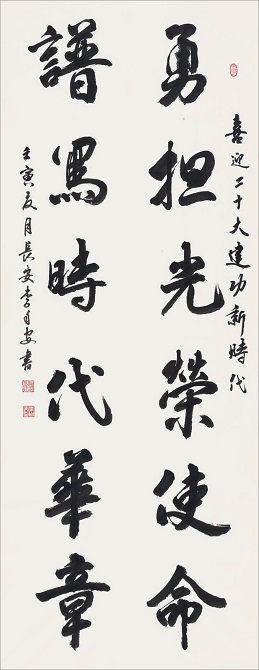 喜迎二十大建功新時代
勇担光榮使命
譜寫時代華章
壬寅夏月長安李子安書